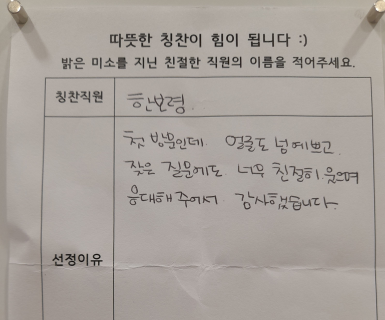 따뜻한 칭찬이 힘이 됩니다 :)
밝은 미소를 지닌 친절한 직원의 이름을 적어주세요.
칭찬직원
한보령
첫 방문인데 얼굴도 넘 예쁘고
잦은 질문에도 너무 친절히 웃으며
응대해 주어서 감사했습니다.
선정이유